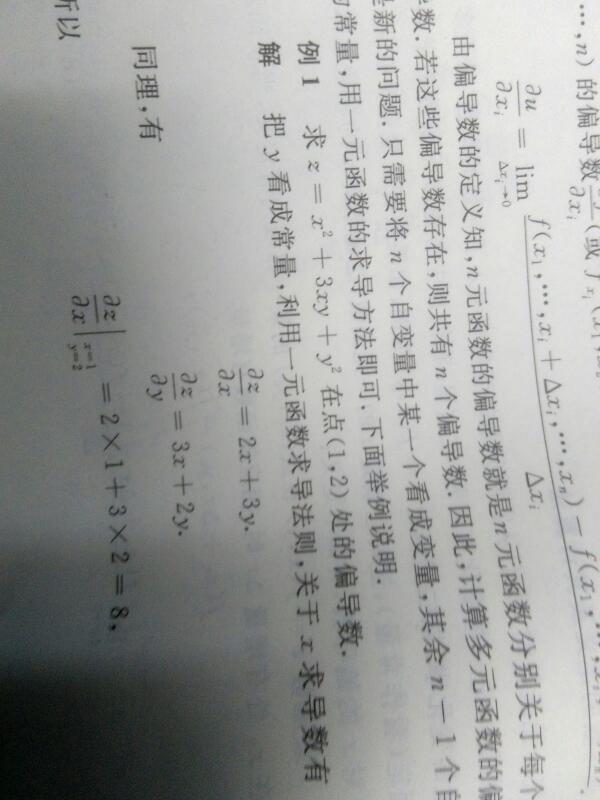 …,n) 的偏导数
∂u/∂xᵢ = lim_{Δxᵢ→0} f(x₁,…,xᵢ+Δxᵢ,…,xₙ)−f(x₁,…,xᵢ, / Δxᵢ
由偏导数的定义知,n元函数的偏导数就是n元函数分别关于每个
数.若这些偏导数存在,则共有n个偏导数.因此,计算多元函数的偏
是新的问题.只需要将n个自变量中某一个看成变量,其余n−1个自
常量,用一元函数的求导方法即可.下面举例说明.
例1 求z=x²+3xy+y²在点(1,2)处的偏导数.
解 把y看成常量,利用一元函数求导法则,关于x求导数有
∂z/∂x=2x+3y.
同理,有
∂z/∂y=3x+2y.
所以
∂z/∂x|_{x=1 y=2}=2×1+3×2=8,